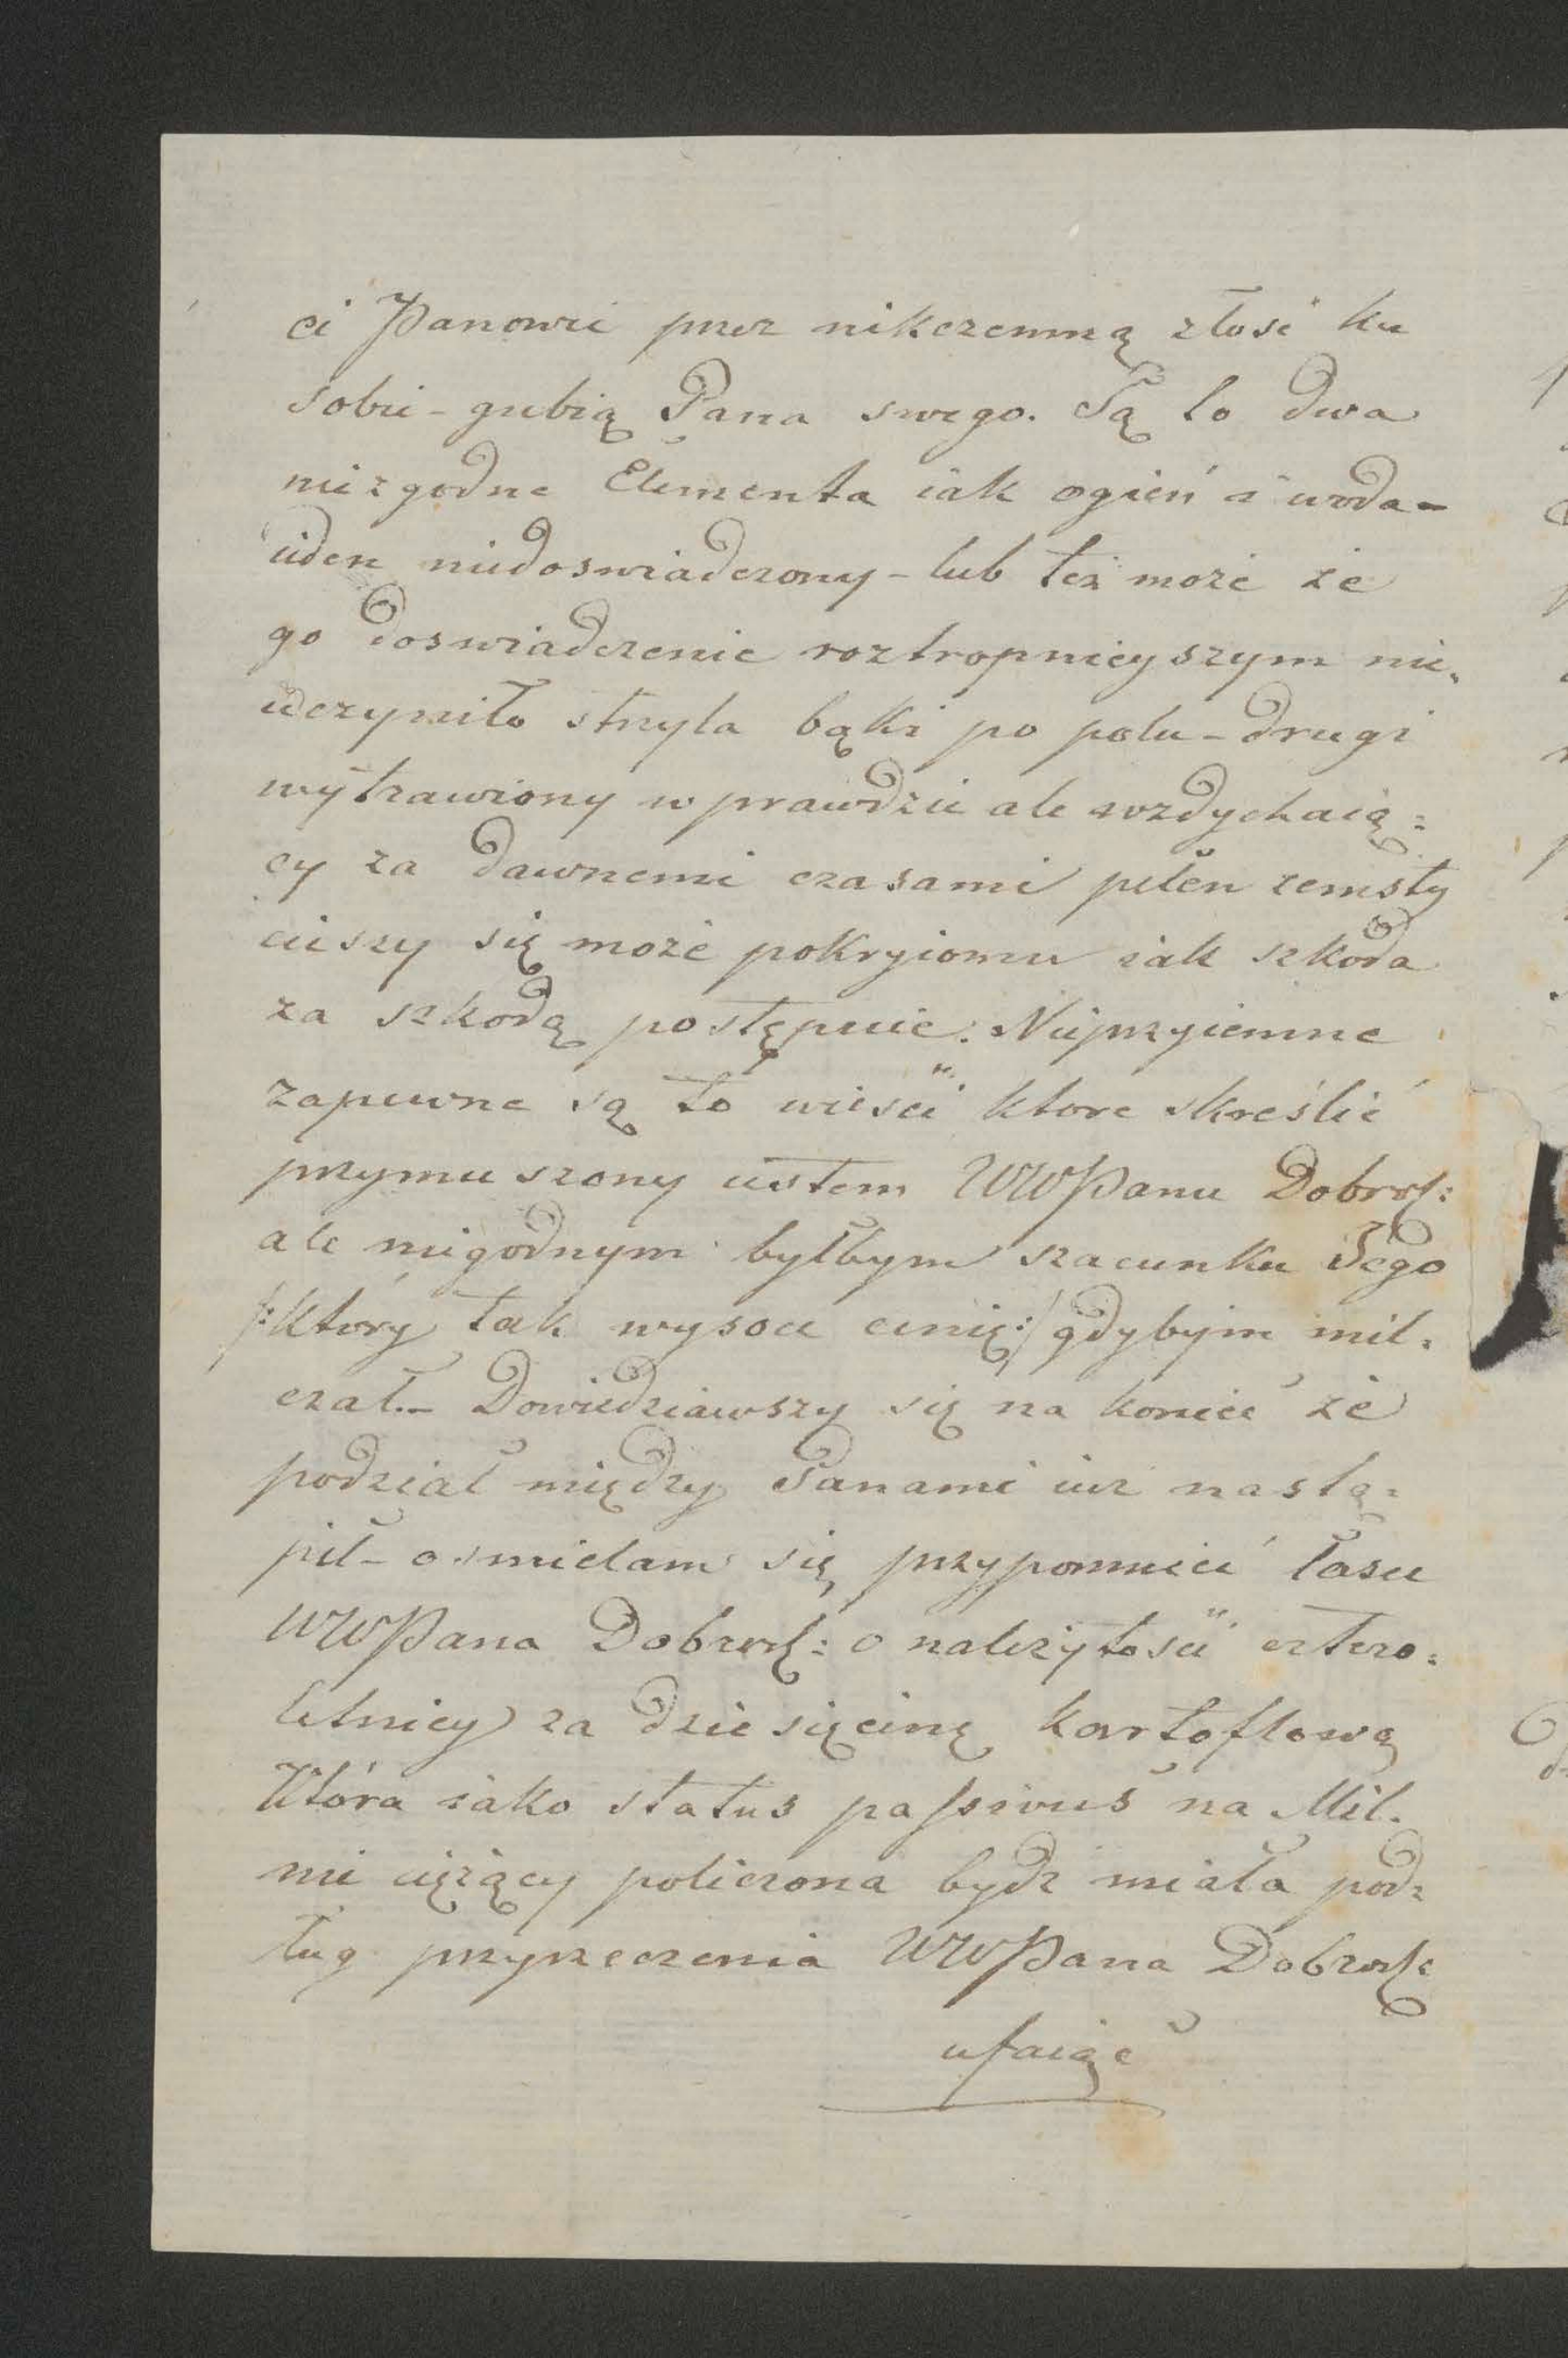 ci Panowie przez nikczemną złość ku
sobie - gubią Pana swego. Są to dwa
niezgodne Elementa iak ogień i woda -
ieden niedoswiadczony - lub też może że
go doswiadczenie roztropnieyszym nie„
uczyniło strzyla bąki po polu - drugi
wytrawiony wprawdzie ale wzdychaią=
cy za dawnemi czasami pełen zemsty
cieszy się może pokryiomu iak szkoda
za szkodą postępuie. Nieprzyiemne
zapewne są to wieści ktore skreślić
przymuszony iestem WWPanu Dobrodz:
ale niegodnym byłbym szacunku Jego
/:ktory tak wysoce cenię:/ gdybym mil=
czał. - Dowiedziawszy się na koniec że
podział między Panami iuz nastą=
pił - osmielam się przypomnieć łasce
WWPana Dobrodz: o należytości cztero=
letniey za dziesięcinę kartoflową
Która iako status passivus na Mil=
nie ciężący policzona bydz miała pod=
ług przyrzeczenia WWPana Dobrodz:
ufaiąc